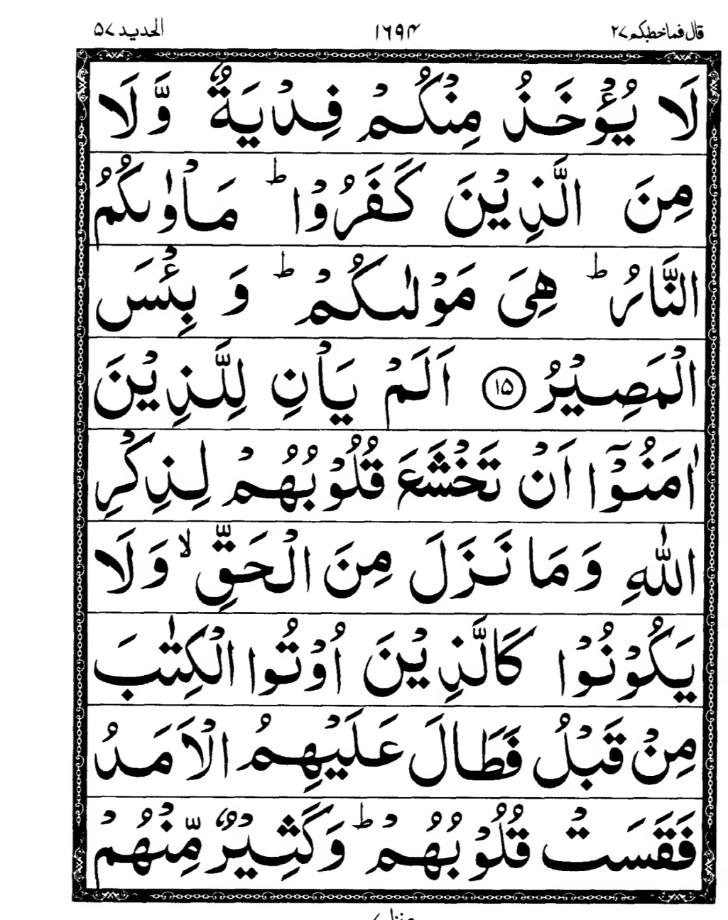 قال فماخطبکم ۲۷ ۱۶۹۴ الحدید ۵۷
لَا يُؤْخَذُ مِنْكُمْ فِدْيَةٌ وَّلَا
مِنَ الَّذِيْنَ كَفَرُوْا ؕ مَاْوٰىكُمُ
النَّارُ ؕ هِىَ مَوْلٰىكُمْ ؕ وَ بِئْسَ
الْمَصِيْرُ ۝۱۵ اَلَمْ يَاْنِ لِلَّذِيْنَ
اٰمَنُوْۤا اَنْ تَخْشَعَ قُلُوْبُهُمْ لِذِكْرِ
اللّٰهِ وَمَا نَزَلَ مِنَ الْحَقِّ ۙ وَلَا
يَكُوْنُوْا كَالَّذِيْنَ اُوْتُوا الْكِتٰبَ
مِنْ قَبْلُ فَطَالَ عَلَيْهِمُ الْاَمَدُ
فَقَسَتْ قُلُوْبُهُمْ ؕ وَكَثِيْرٌ مِّنْهُمْ
منزل ۷